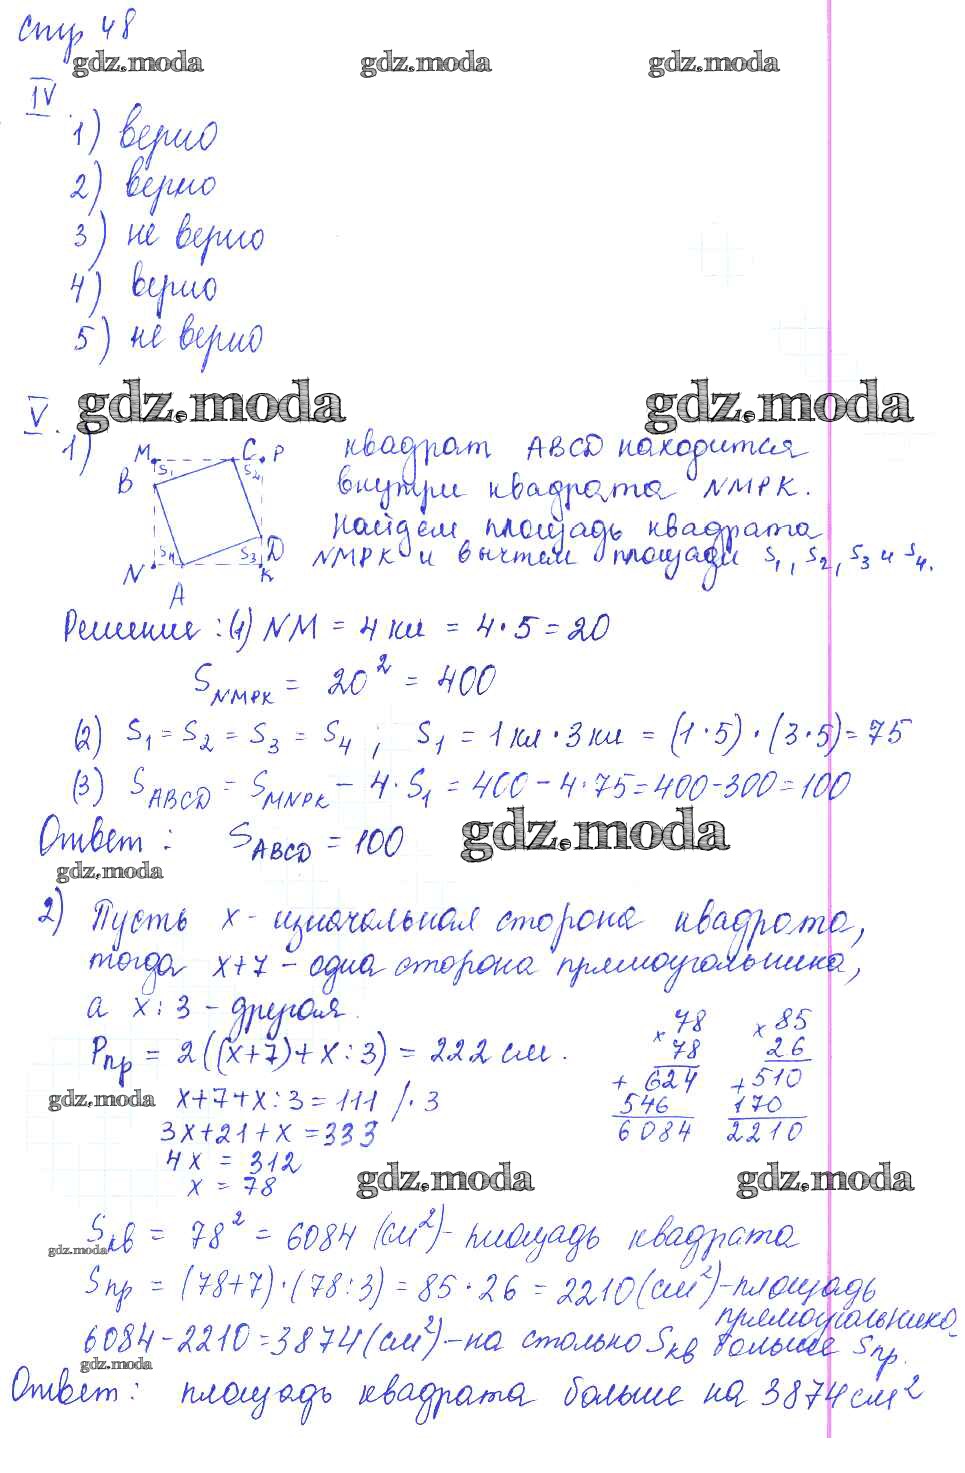 стр 48
gdz.moda gdz.moda gdz.moda
IV.
1) верно
2) верно
3) не верно
4) верно
5) не верно
V. gdz.moda gdz.moda
1) M C P
B S₁ S₂
N A S₄ S₃ D K
квадрат ABCD находится
внутри квадрата NMPK.
Найдём площадь квадрата
NMPK и вычтем площади S₁, S₂, S₃ и S₄.
Решение: (1) NM = 4 кл = 4·5 = 20
S_NMPK = 20² = 400
(2) S₁ = S₂ = S₃ = S₄; S₁ = 1 кл · 3 кл = (1·5)·(3·5) = 75
(3) S_ABCD = S_MNPK − 4·S₁ = 400 − 4·75 = 400 − 300 = 100
Ответ: S_ABCD = 100 gdz.moda
gdz.moda
2) Пусть x - изначальная сторона квадрата,
тогда x+7 - одна сторона прямоугольника,
а x:3 - другая.
P_пр = 2((x+7)+x:3) = 222 см.
gdz.moda x+7+x:3 = 111 /·3
3x+21+x = 333
4x = 312
x = 78
× 78
78
+ 624
546
6084
× 85
26
+ 510
170
2210
gdz.moda gdz.moda
S_кв = 78² = 6084 (см²) - площадь квадрата
gdz.moda
S_пр = (78+7)·(78:3) = 85·26 = 2210 (см²) - площадь
прямоугольника
6084 − 2210 = 3874 (см²) - на столько S_кв больше S_пр.
gdz.moda
Ответ: площадь квадрата больше на 3874 см²